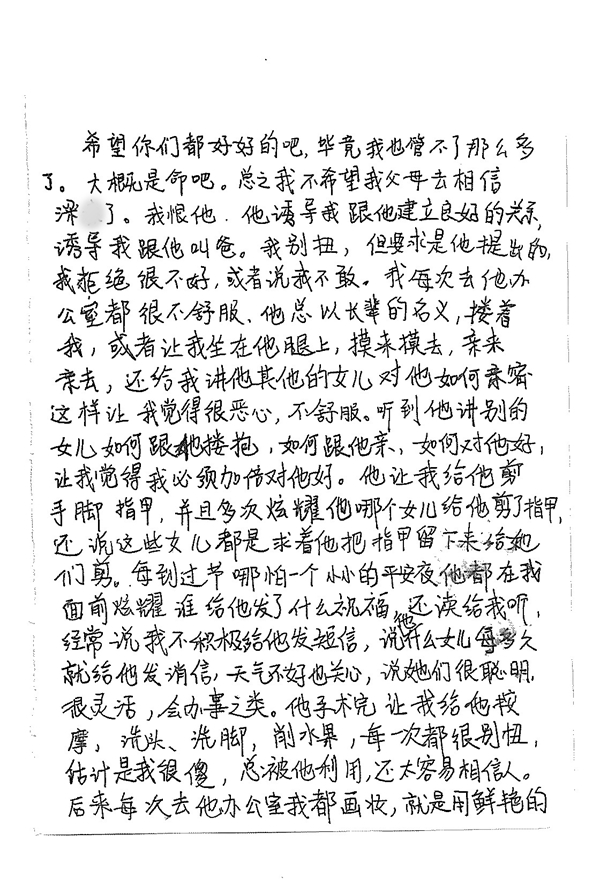 希望你们都好好的吧，毕竟我也管不了那么多
了。大概是命吧。总之我不希望我父母去相信
深 了。我恨他．他诱导我跟他建立良好的关系，
诱导我跟他叫爸。我别扭，但要求是他提出的，
我拒绝很不好，或者说我不敢。我每次去他办
公室都很不舒服、他总以长辈的名义，搂着
我，或者让我坐在他腿上，摸来摸去，亲来
亲去，还给我讲他其他的女儿对他如何亲密
这样让我觉得很恶心，不舒服。听到他讲别的
女儿如何跟他搂抱，如何跟他亲，如何对他好，
让我觉得我必须加倍对他好。他让我给他剪
手脚指甲，并且多次炫耀他哪个女儿给他剪了指甲，
还说这些女儿都是求着他把指甲留下来给她
们剪。每到过节哪怕一个小小的平安夜他都在我
面前炫耀谁给他发了什么祝福，还读给我听，
经常说我不积极给他发短信，说他什么女儿每多久
就给他发消信，天气不好也关心，说她们很聪明，
很灵活，会办事之类。他手术完让我给他按
摩，洗头、洗脚，削水果，每一次都很别扭，
估计是我很傻，总被他利用，还太容易相信人。
后来每次去他办公室我都画妆，就是用鲜艳的